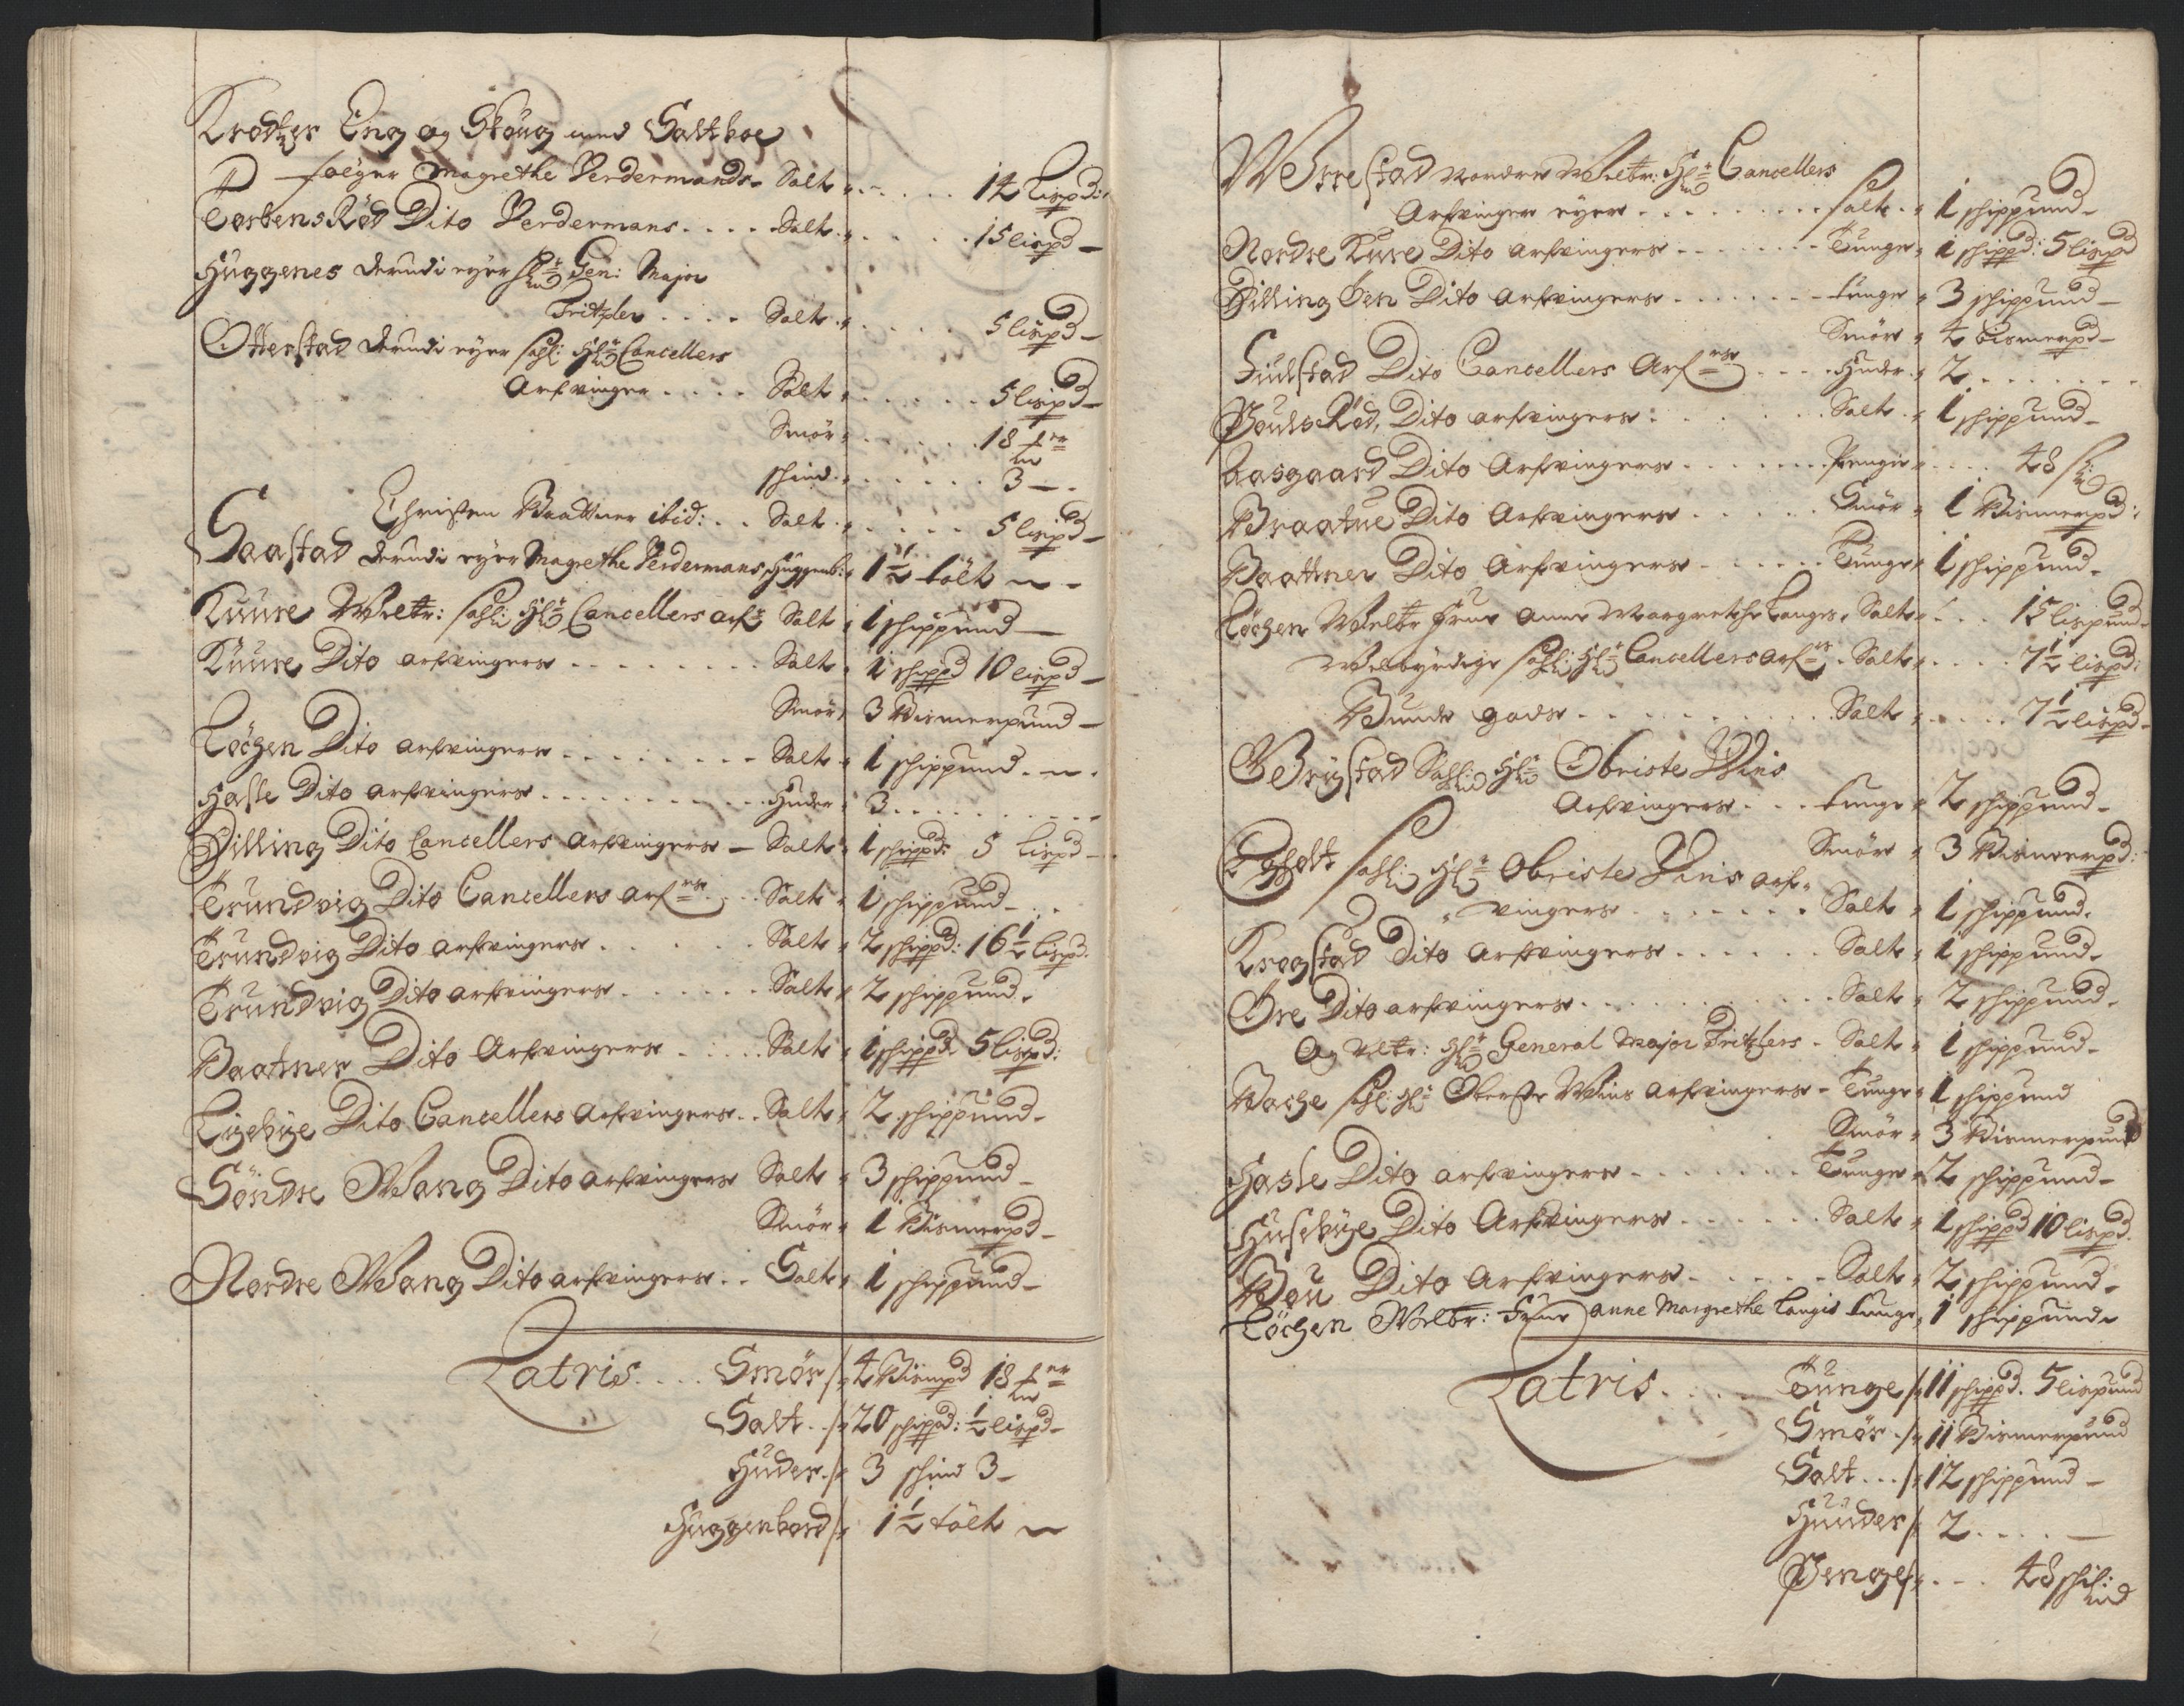 Krodzer Eng og Skoug med Saltboe
foeger Magrethe Verdermands Salt 14 Lispd:
Torbens Rød Dito Verdermans Salt 15 lispd
Huggenes derudi eyer Hr Gen: Major
Tritzler Salt 5 lispd
Otterstad derudi eyer Sahl: Hr Cancellers
Arfvinger Salt 5 lispd
Smör 18
schind 3
Christen Baattner ibid: Salt 5 lispd
Saastad derudi eyer Magrethe Verdermans Huggenb: 1½ tölt
Kuure Welb: Sahl: Hr Cancellers arf: Salt 1 schippund
Kuure Dito arfvingers Salt 1 schippd 10 lispd
Smör 3 Bismerpund
Löchen Dito arfvingers Salt 1 schippund
Hasle Dito arfvingers Huder 3
Dilling Dito Cancellers Arfvingers Salt 1 schippd: 5 Lispd
Trundvig Dito Cancellers arf Salt 1 schippund
Trundvig Dito arfvingers Salt 2 schippd: 16½ lispd
Trundvig Dito arfvingers Salt 2 schippund
Baatner Dito Arfvingers Salt 1 schippd 5 lispd:
Eyebye Dito Cancellers Arfvingers Salt 2 schippund
Söndre Wang Dito arfvingers Salt 3 schippund
Smör 1 Bismerpd
Nordre Wang Dito arfvingers Salt 1 schippund
Latris Smör 4 Bismpd 18
Salt 20 schippd: ½ lispd
Huder 3 schind 3
Huggenbord 1½ tölt
Werrestad Nordre Welb: Hr Cancellers
Arfvinger eyer Salt 1 schippund
Nordre Kure Dito arfvingers Tunge 1 schippd: 5 lispd
Dilling Öen Dito Arfvingers tunge 3 schippund
Smör 4 bismerpd
Gudstad Dito Cancellers Arf Huder 2
Pouls Rød, Dito arfvingers Salt 1 schippund
Aasgaard Dito Arfvingers Penge 48 s
Braatne Dito Arfvingers Smör 1 Bismerpd:
Baattner Dito Arfvingers Tunge 1 schippund
Löchen Welb: Frue Anne Margrethe Langes Salt 15 lispund
Welbyrdige Sahl: Hr Cancellers arf Salt 7½ lispd:
Bunde gods Salt 7½ lispd
Sahl: Hr Obriste Wins
Arfvingers tunge 2 schippund
Smör 3 Bismerpd:
Egholt Sahl: Hr Obriste Wins arf
vingers Salt 1 schippund
Krogstad Dito Arfvingers Salt 1 schippund
Öre Dito arfvingers Salt 2 schippund
Og Velb: Hr General Major Tritzlers Salt 1 schippund
Bache Sahl: Hr Oberste Wins arfvingers Tunge 1 schippund
Smör 3 Bismerpund
Hasle Dito arfvingers Tunge 2 schippund
Husebye Dito Arfvingers Salt 1 schippd 10 lispd
Bøu Dito Arfvingers Salt 2 schippund
Löchen Welbr: Frue anne Margrethe Langis tunge 1 schippund
Latris Tunge 11 schippd. 5 lispund
Smör 11 Bismerpund
Salt 12 schippund
Huuder 2
Penge 48 schil: